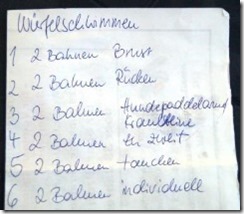 Würfelschwimmen
1 2 Bahnen Brust
2 2 Bahnen Rücken
3 2 Bahnen
4 2 Bahnen zu zweit
5 2 Bahnen tauchen
6 2 Bahnen individuell